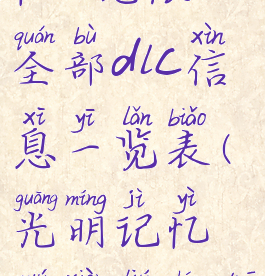 quán bù xìn
全部dlc信
xī yī lǎn biǎo
息一览表(
guāng míng jì yì
光明记忆